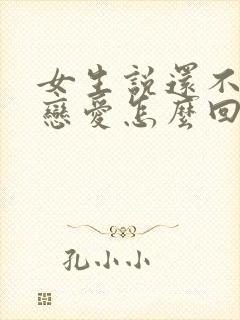 女生説還不
戀愛怎麼回
孔小小